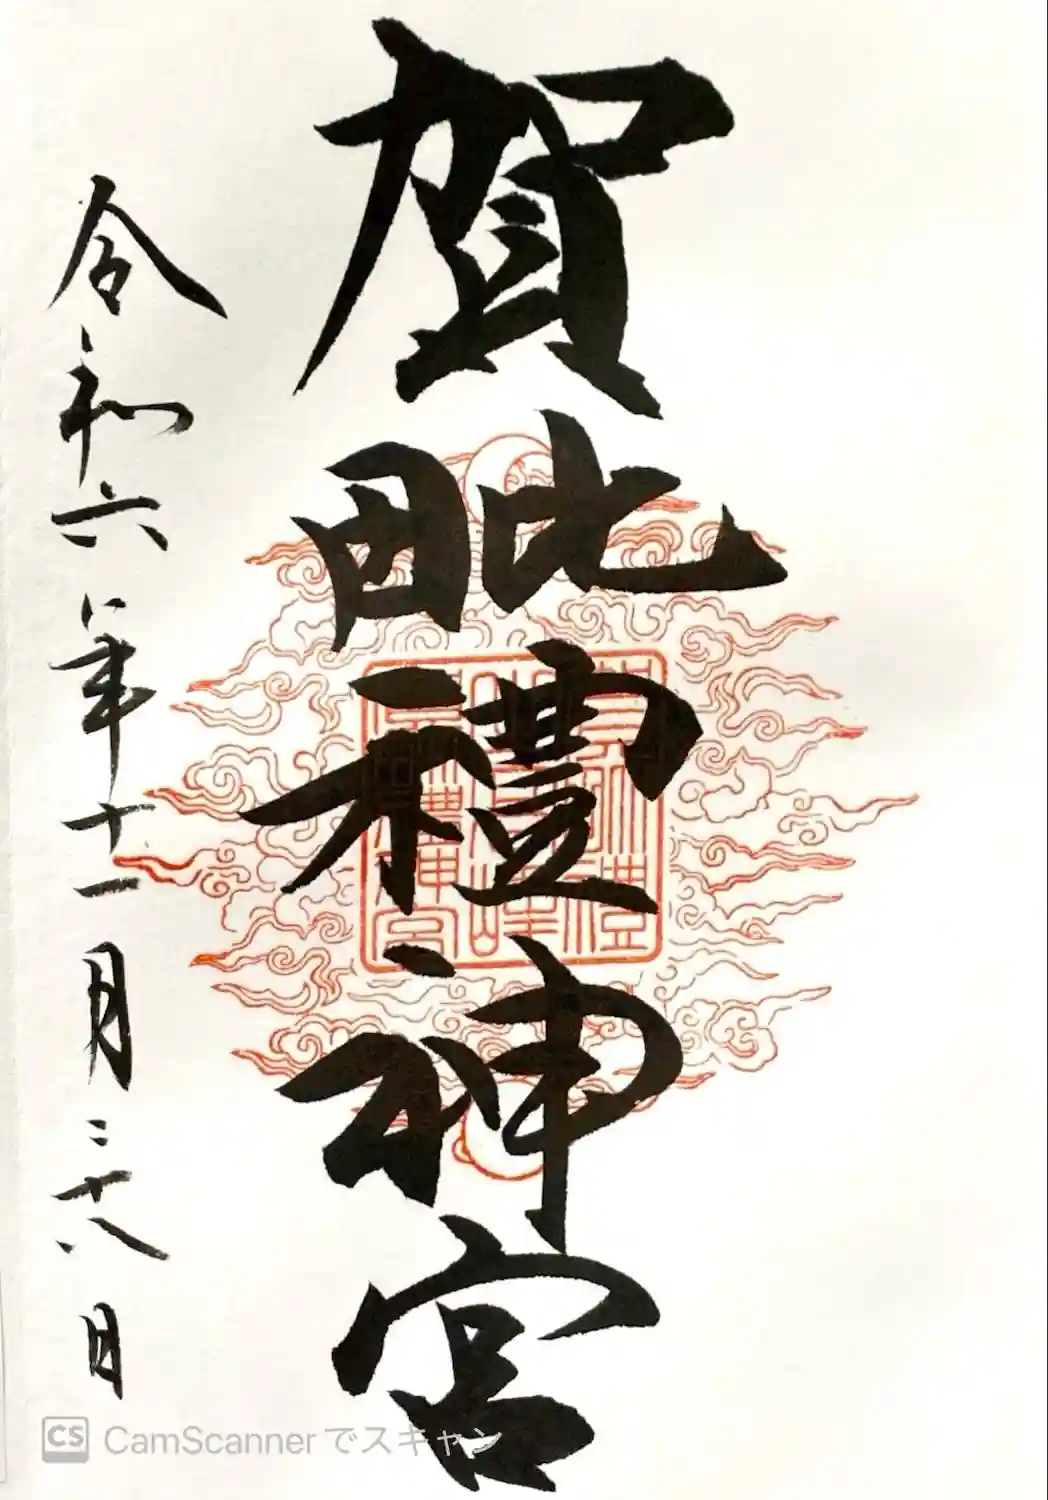 賀毗禮神宮
令和六年十一月二十八日
CS CamScannerでスキャン